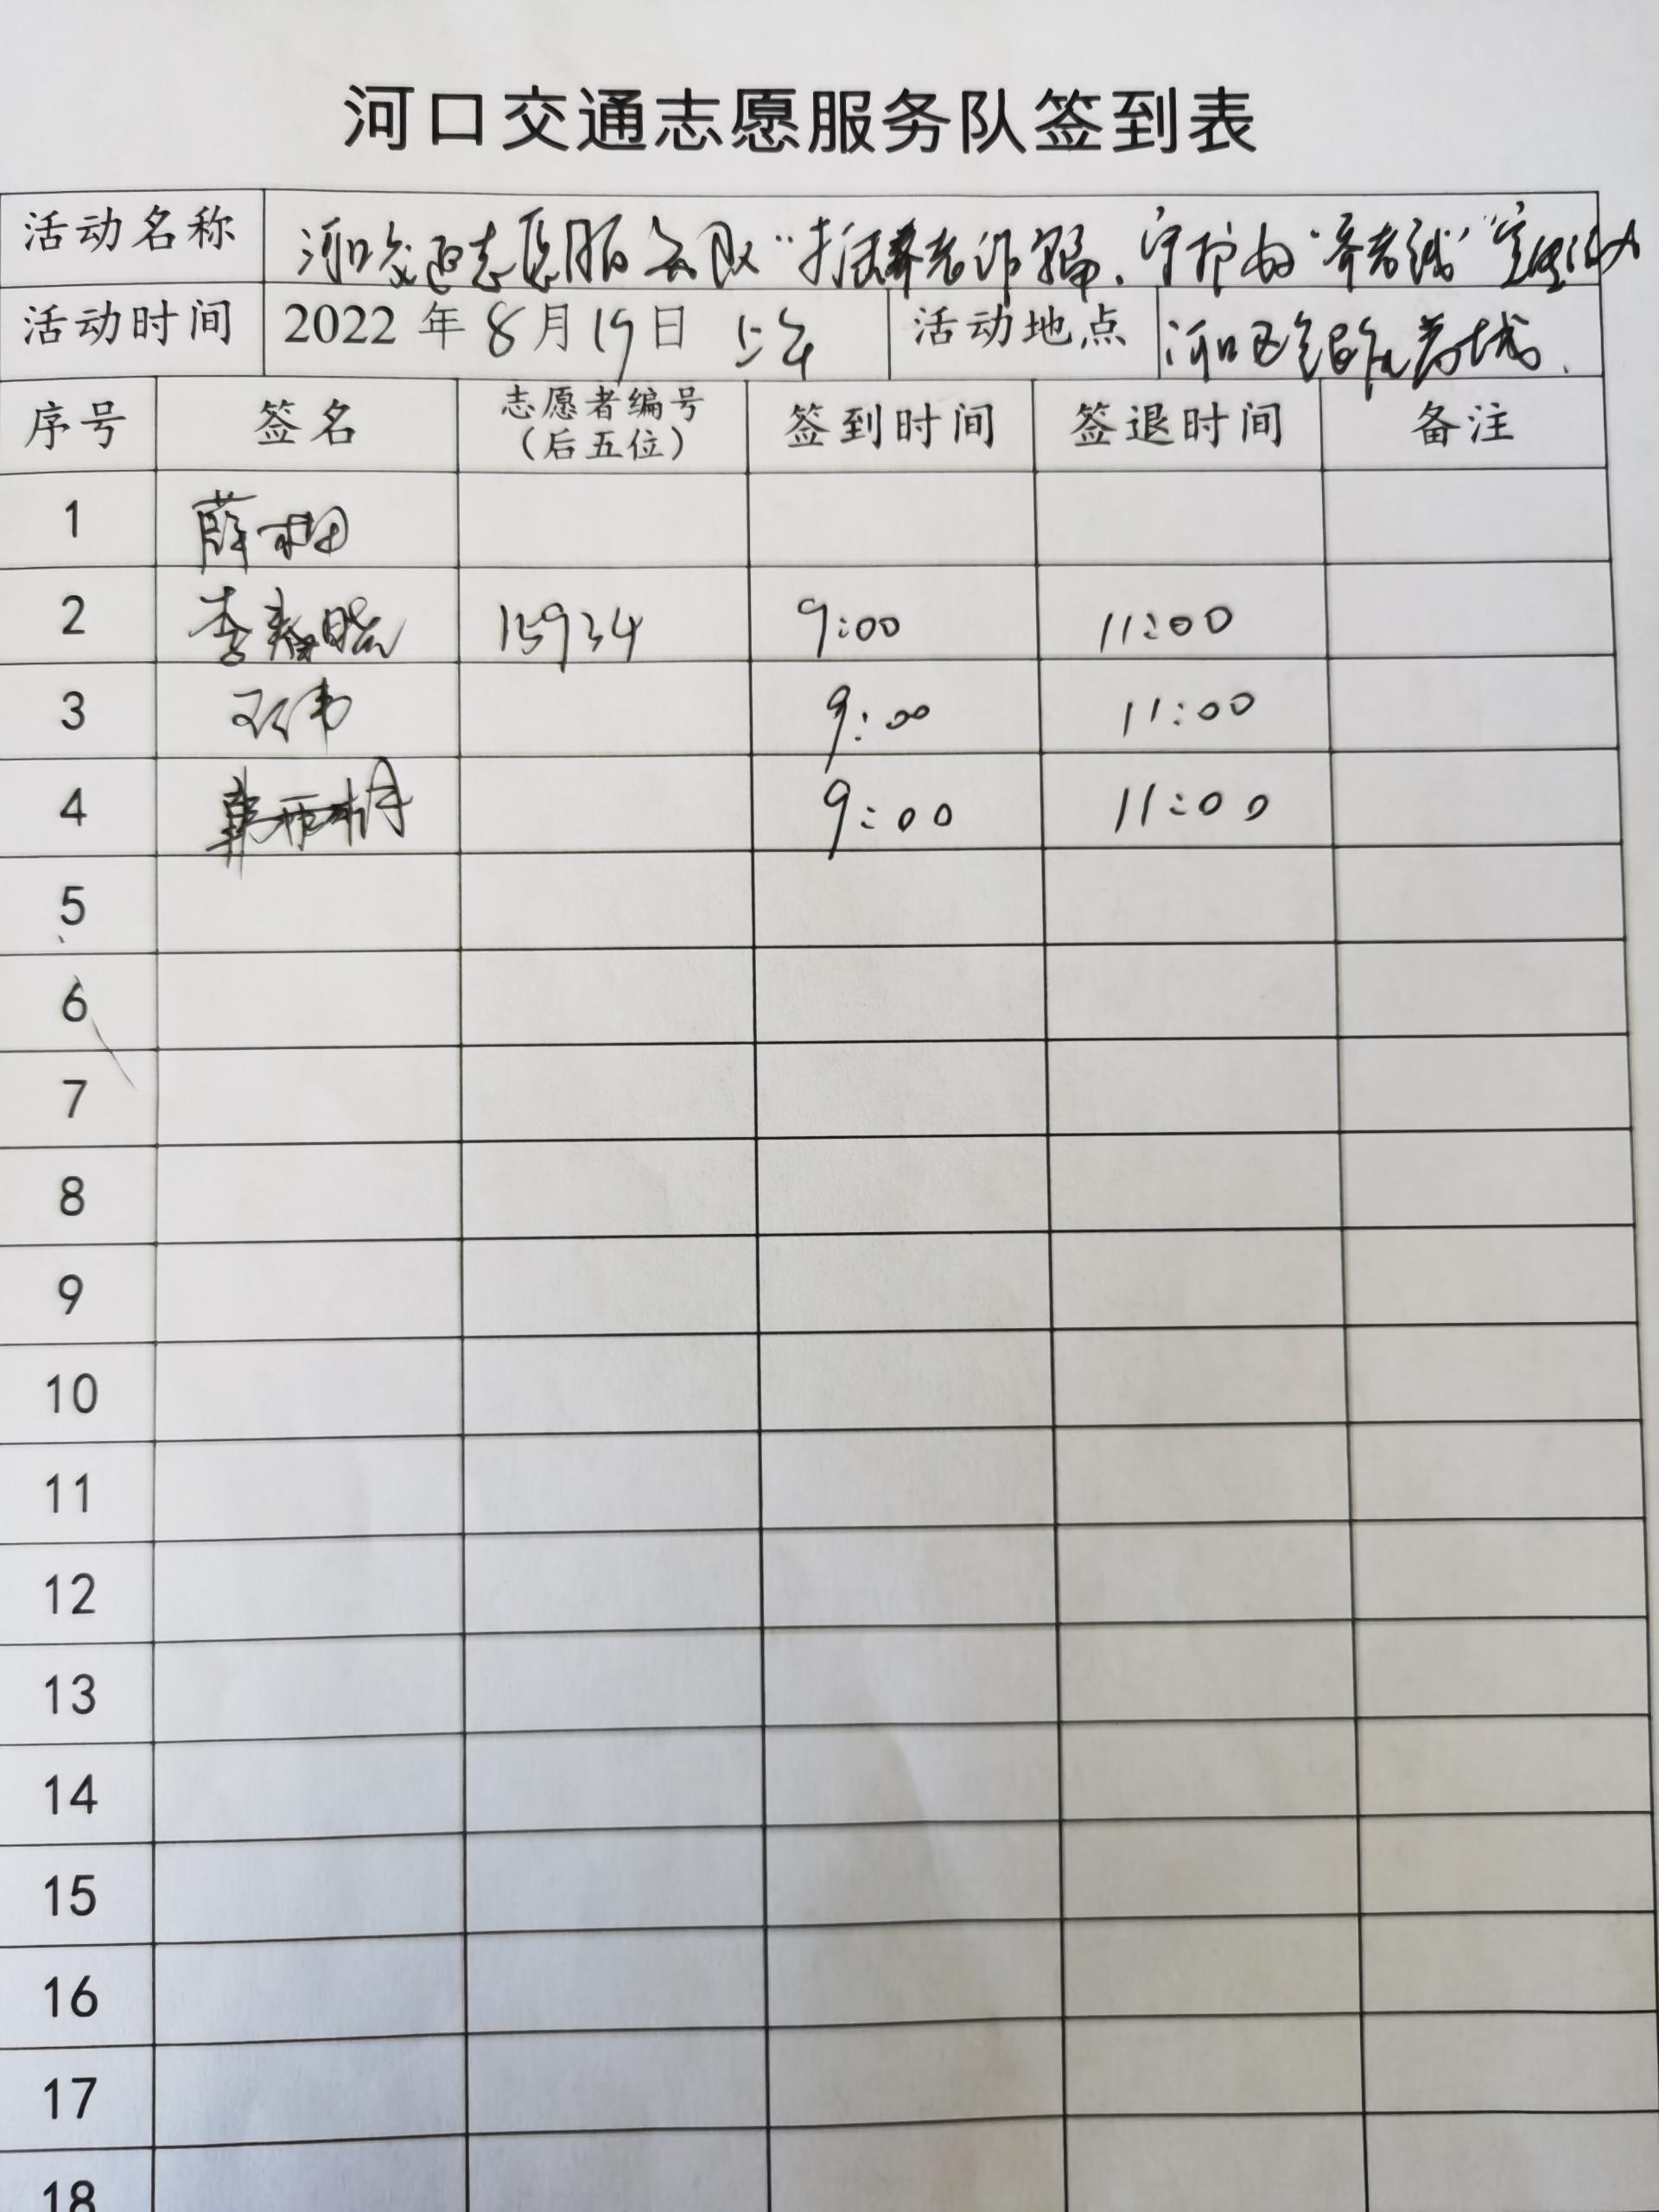 河口交通志愿服务队签到表
活动名称 河口交通志愿服务队"打击养老诈骗、守护好"养老钱"宣传活动
活动时间 2022年8月19日 上午 活动地点 河口区 药城
序号 签名 志愿者编号（后五位） 签到时间 签退时间 备注
1 薛
2 李春晓 15934 9:00 11:00
3 9:00 11:00
4 9:00 11:00
5
6
7
8
9
10
11
12
13
14
15
16
17
18